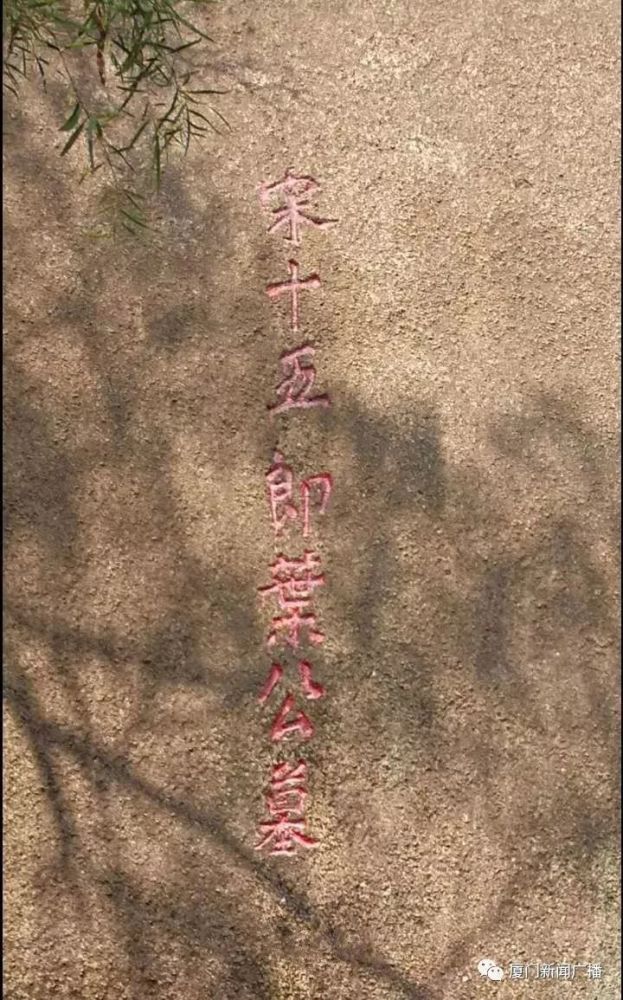 宋十五郎葉公墓
厦门新闻广播